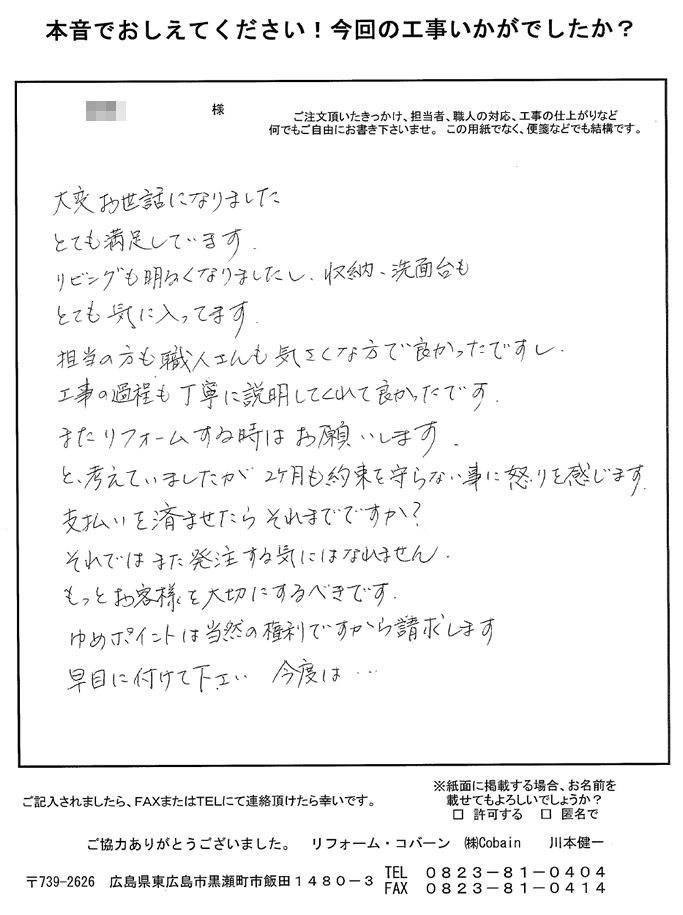 本音でおしえてください！今回の工事いかがでしたか？
様
ご注文頂いたきっかけ、担当者、職人の対応、工事の仕上がりなど
何でもご自由にお書き下さいませ。この用紙でなく、便箋などでも結構です。
大変お世話になりました
とても満足しています.
リビングも明るくなりましたし、収納、洗面台も
とても気に入ってます.
担当の方も職人さんも気さくな方で良かったですし.
工事の過程も丁寧に説明してくれて良かったです.
またリフォームする時はお願いします.
と、考えていましたが 2ケ月も約束を守らない事に怒りを感じます.
支払いを済ませたらそれまでですか？
それではまた発注する気にはなれません.
もっとお客様を大切にするべきです.
ゆめポイントは当然の権利ですから請求します
早目に付けて下さい 今度は…
ご記入されましたら、FAXまたはTELにて連絡頂けたら幸いです。
※紙面に掲載する場合、お名前を
載せてもよろしいでしょうか？
□ 許可する □ 匿名で
ご協力ありがとうございました。 リフォーム・コバーン ㈱Cobain 川本健一
〒739-2626 広島県東広島市黒瀬町市飯田１４８０－３
TEL ０８２３－８１－０４０４
FAX ０８２３－８１－０４１４